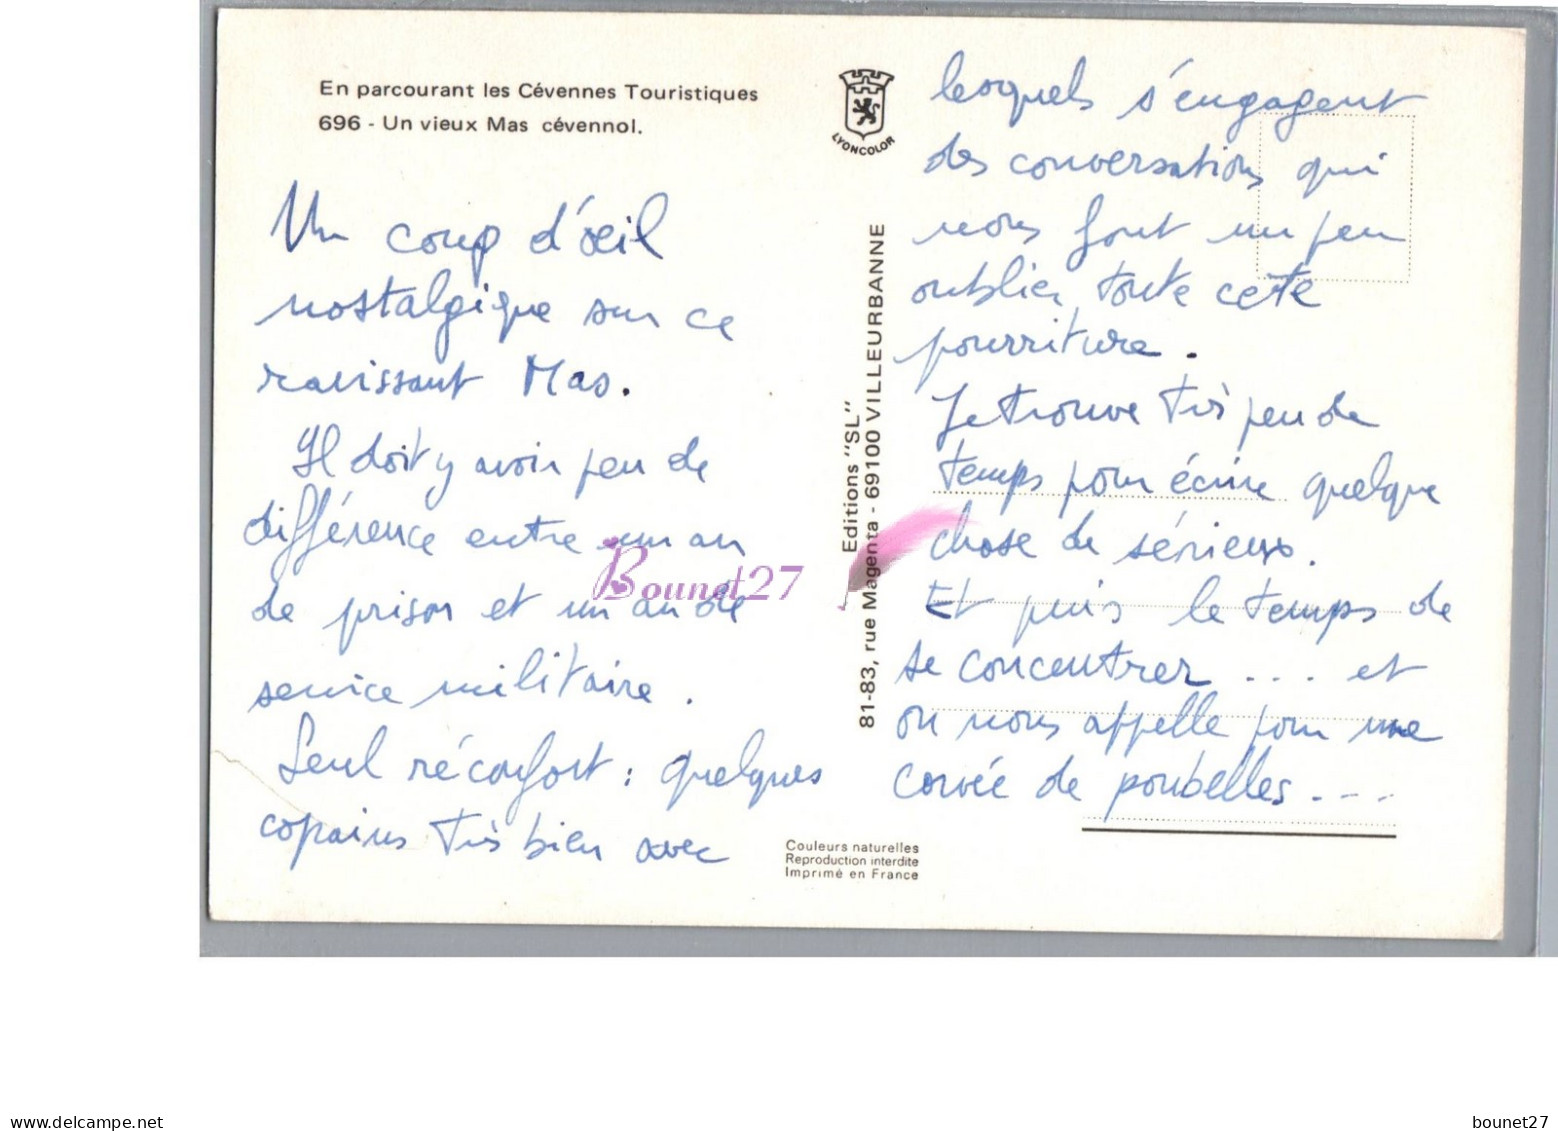 En parcourant les Cévennes Touristiques
696 - Un vieux Mas cévennol.
LYONCOLOR
Un coup d'œil
nostalgique sur ce
ravissant Mas.
Il doit y avoir peu de
différence entre un an
de prison et un an de
service militaire.
Seul réconfort : quelques
copains très bien avec
Editions "SL"
81-83, rue Magenta - 69100 VILLEURBANNE
Bounet27
Couleurs naturelles
Reproduction interdite
Imprimé en France
lesquels s'engagent
des conversations qui
nous font un peu
oublier toute cette
pourriture.
Je trouve très peu de
temps pour écrire quelque
chose de sérieux.
Et puis le temps de
se concentrer ... et
on nous appelle pour une
corvée de poubelles ...
www.delcampe.net
bounet27